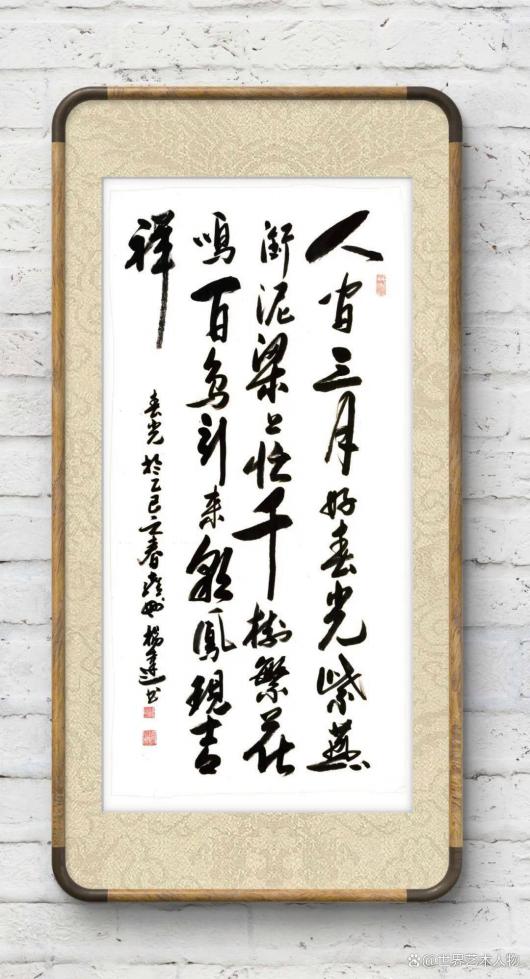 人间三月好春光紫燕
衔泥梁上忙千樹繁花
鸣百鸟引来彩鳳現吉
祥
春光 於乙巳之春 楊 书
@世界艺术人物